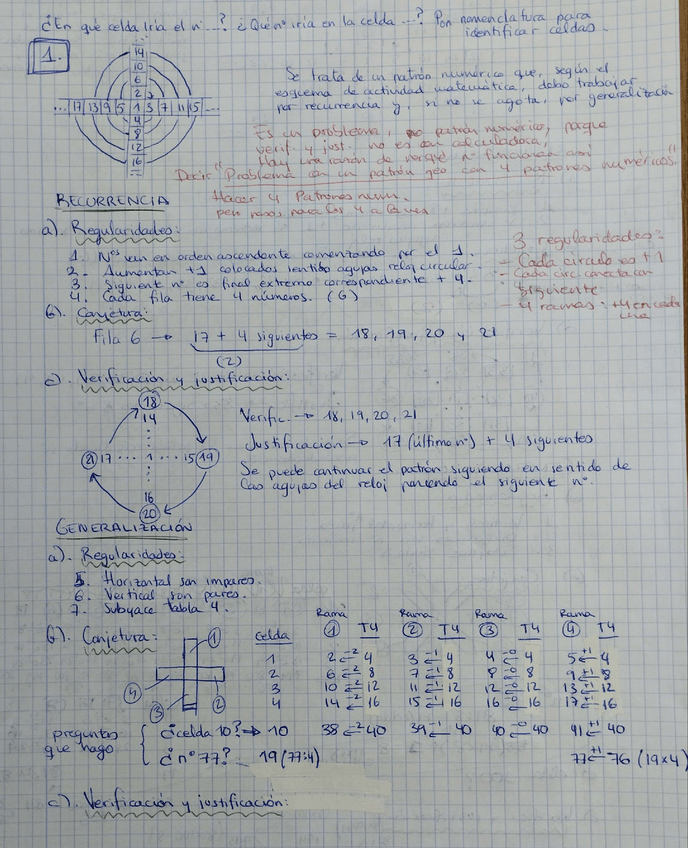 ¿En qué celda iría el nº...? ¿Qué nº iría en la celda ...? Pon nomenclatura para
identificar celdas.
1.
14
10
6
2
... 17 13 9 5 1 3 7 11 15 ...
4
8
12
16
Se trata de un patrón numérico que, según el
esquema de actividad matemática, debo trabajar
por recurrencia y, si no se agota, por generalización
Es un problema, no patrón numérico, porque
verif. y just. no es con calculadora,
Hay una razón de porqué nº funcionan así
Decir "Problema con un patrón geo con 4 patrones numéricos"
Hacer 4 Patrones num.
RECURRENCIA
a). Regularidades:
1. Nºs van en orden ascendente comenzando por el 1.
2. Aumentan +1 colocados sentido agujas reloj circular.
3. Siguiente nº es final extremo correspondiente + 4.
4. Cada fila tiene 4 números. (G)
3 regularidades:
- Cada círculo es +1
- Cada circ. conecta con
siguiente
- 4 ramas: +4 en cada
una
b). Conjetura:
Fila 6 → 17 + 4 siguientes = 18, 19, 20 y 21
(2)
c). Verificación y justificación:
18
14
21 17 ... 1 ... 15 19
16
20
Verific. → 18, 19, 20, 21
Justificación → 17 (último nº) + 4 siguientes
Se puede continuar el patrón siguiendo en sentido de
las agujas del reloj poniendo el siguiente nº.
GENERALIZACIÓN
a). Regularidades:
5. Horizontal son impares.
6. Vertical son pares.
7. Subyace tabla 4.
b). Conjetura:
1
4
2
3
Rama Rama Rama Rama
Celda 1 T4 2 T4 3 T4 4 T4
1 2 ←-2 4 3 ←-1 4 4 ←-0 4 5 ←+1 4
2 6 ←-2 8 7 ←-1 8 8 ←-0 8 9 ←+1 8
3 10 ←-2 12 11 ←-1 12 12 ←-0 12 13 ←+1 12
4 14 ←-2 16 15 ←-1 16 16 ←-0 16 17 ←+1 16
preguntas
que hago
¿celda 10? → 10 38 ←-2 40 39 ←-1 40 40 ←-0 40 41 ←+1 40
¿nº 77? 19 (77:4) 77 ←+1 76 (19x4)
c). Verificación y justificación: